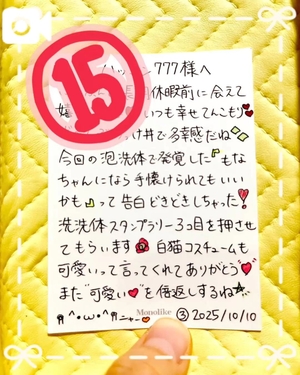 15
777様へ
休暇前に会えて
いつも幸せてんこもり
け丼で多幸感だね
今回の泡洗体で発覚した"もな
ちゃんになら手懐けられてもいい
かも"って告白どきどきしちゃった!
洗洗体スタンプラリー3コ目を押させ
てもらいます 白猫コスチュームも
可愛いって言ってくれてありがとう
また"可愛い"を倍返しするね
^•ω•^ ニャー
Monolike
③ 2025/10/10